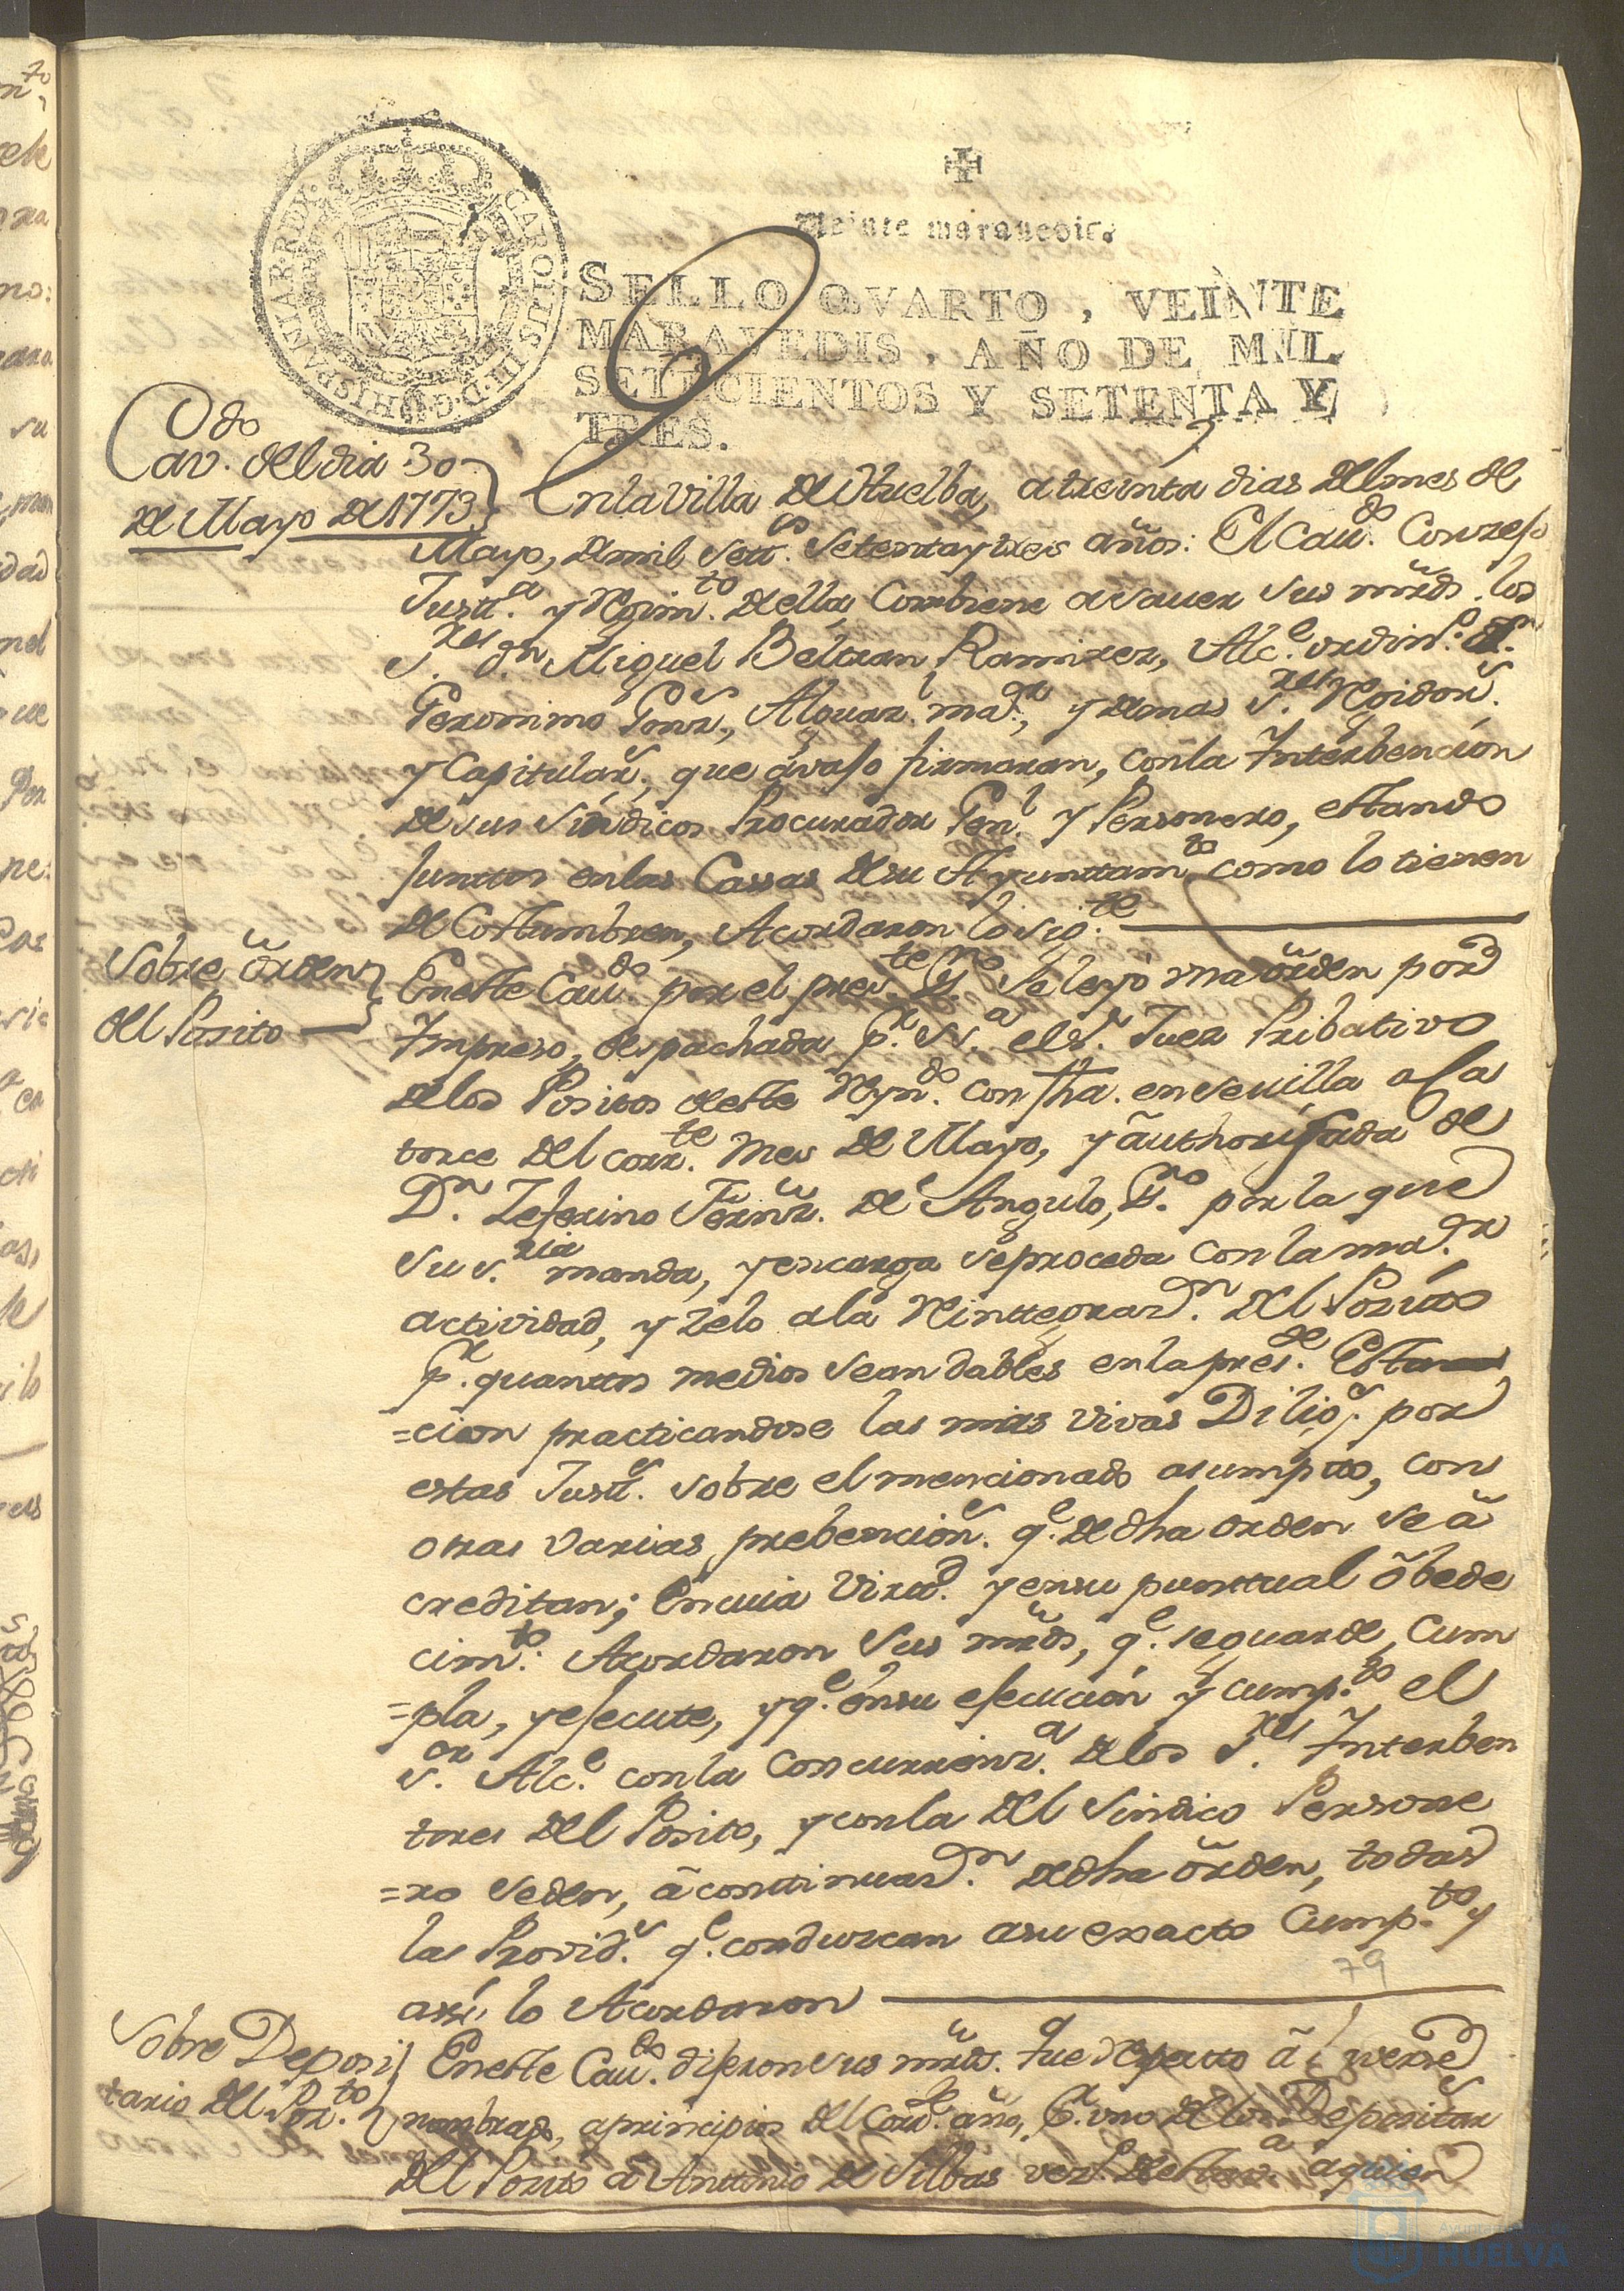 Veinte maravedis.
SELLO QVARTO, VEINTE
MARAVEDIS, AÑO DE MIL
SETECIENTOS Y SETENTA Y
TRES.
CAROLUS III D. G. HISPANIAR. REX
Cavdo
del dia 30
de Mayo de 1773
En la Villa de Huelba, a treinta dias del mes de
Mayo, de mil settos setenta y tres años: El Cavdo Conzejo
Justta y Regimto de ella combiene a sauer sus mrds. los
Sres Dn Miguel Beltran Ramirez, Alce ordino Dn
Geronimo Gonz., Alguazl mador, y demas Sres Regidors
y Capitulars, que avajo firmaran, con la Interbencion
de sus Sindicos Procurador Genl y Personero, estando
juntos en las Cassas de su Ayunttamto como lo tienen
de Costumbren, Acordaron lo sigte
Sobre orden
del Posito
En este Cavdo por el preste Esno se leyó una orden por
Impreso, despachada pr Sa el Sr Juez Pribativo
de los Positos de este Reyndo con fha. en Sevilla a ca
torce del corrte mes de Mayo, y authorisada de
Dn Zeferino Fernz. de Angulo, Esno por la que
su sria manda, y encarga se proceda con la mador
actividad, y zelo a la Reinttegrazn del Posito
pr quantos medios sean dables en la preste Esta
=cion practicandose las mas vivas Diligs por
estas Justs sobre el mencionado asumpto, con
otras varias prebencions qe de dha orden se a
creditan; En cuia virtd y en su puntual obede
cimto: Acordaron sus mrds, qe se guarde, cum
=pla, y efecute, y qe en su efecucion y cumpto el
Sor Alce con la concurrenza de los Sres Interben
tores del Posito, y con la del Sindico Persone
=ro se den, a conttinuazn de dha orden, todas
las Provids qe conduzcan a su exacto Cumpto y
assi lo Acordaron
79
Sobre Deposi
tario del Posto
En este Cavdo dixeron sus mrds. que respecto a haverse
nombrado, a principios del corrte año, pr uno de los Depositars
del Posito a Anttonio de Silbas vezo de esta va a quien
Ayuntamiento de
HUELVA